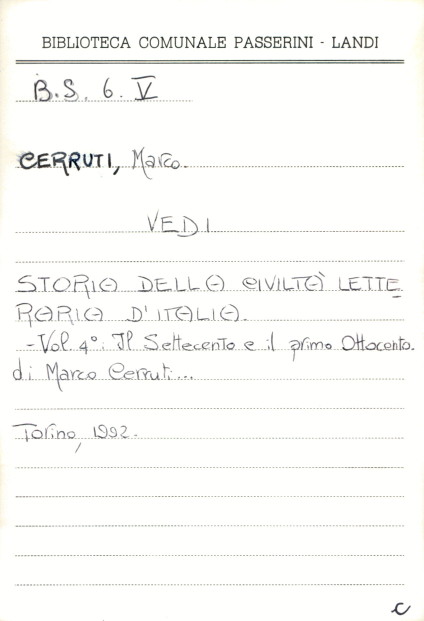 BIBLIOTECA COMUNALE PASSERINI - LANDI
B.S. 6. V
CERRUTI, Marco.
VEDI
STORIA DELLA CIVILTÀ LETTE
RARIA D'ITALIA.
- Vol. 4°: Il Settecento e il primo Ottocento.
di Marco Cerruti...
Torino, 1992.
C